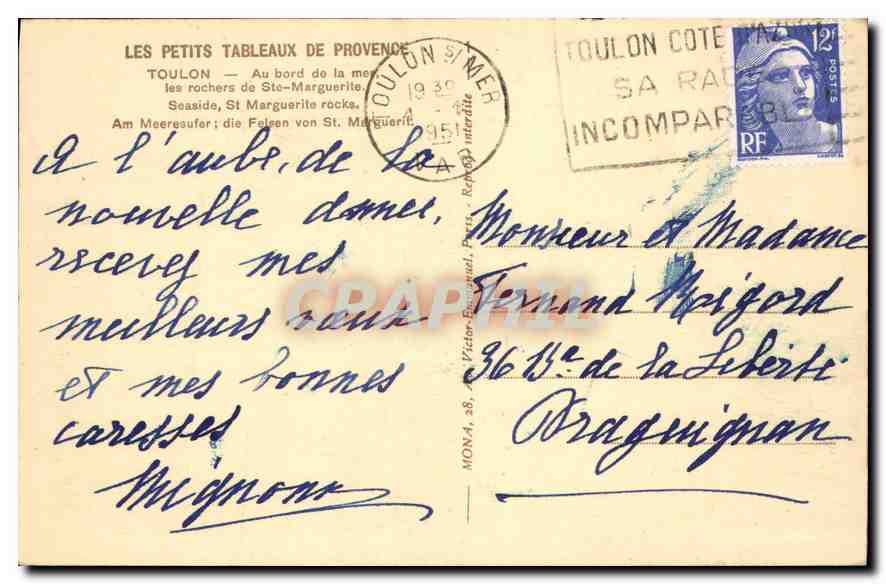 LES PETITS TABLEAUX DE PROVENCE
TOULON — Au bord de la mer,
les rochers de Ste-Marguerite.
Seaside, St Marguerite rocks.
Am Meeresufer; die Felsen von St. Marguerit.
TOULON S/MER
1951
VAR
TOULON COTE D'AZUR
SA RADE
INCOMPARABLE
12F
POSTES
RF
A l'aube, de la
nouvelle année,
recevez mes
meilleurs voeux
et mes bonnes
caresses
Mignonne
MONA, 28, Victor-Emmanuel, Paris. - Reprod. interdite
Monsieur et Madame
Fernand Rigord
36 Bd de la Liberté
Draguignan
CPAPHIL